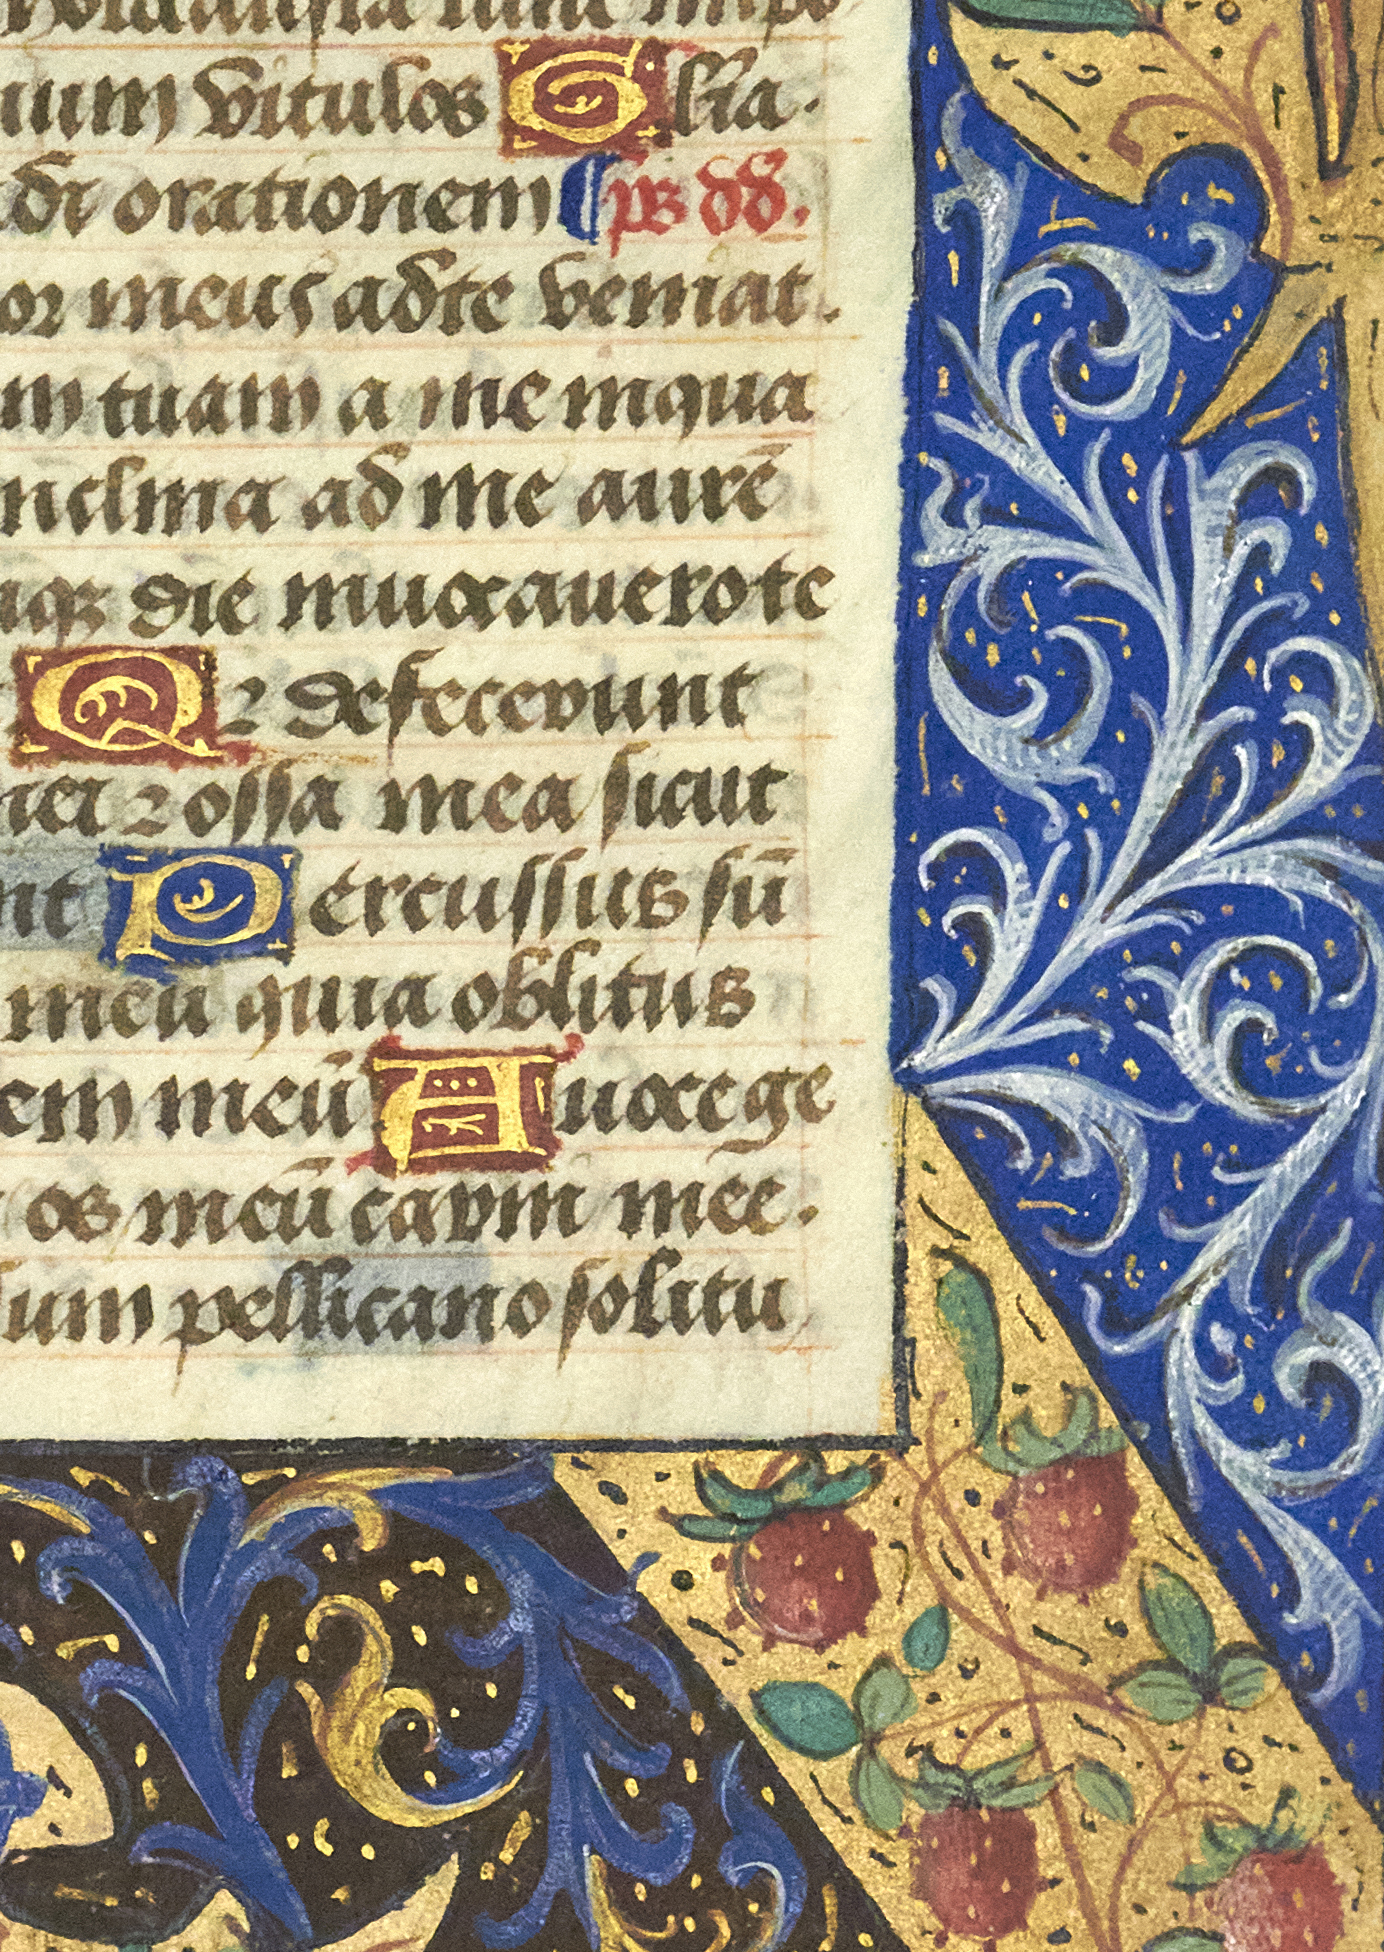 holocausta tunc impo
tuum vitulos Glīa.
audi orationem ps dd.
or meus ad te veniat.
m tuam a me in qua
inclina ad me aurē
uq₃ die invocavero te
Qz defecerunt
mei z ossa mea sicut
nt Percussus sū
meū quia oblitus
em meū A voce ge
os meū carni mee.
sum pellicano solitu